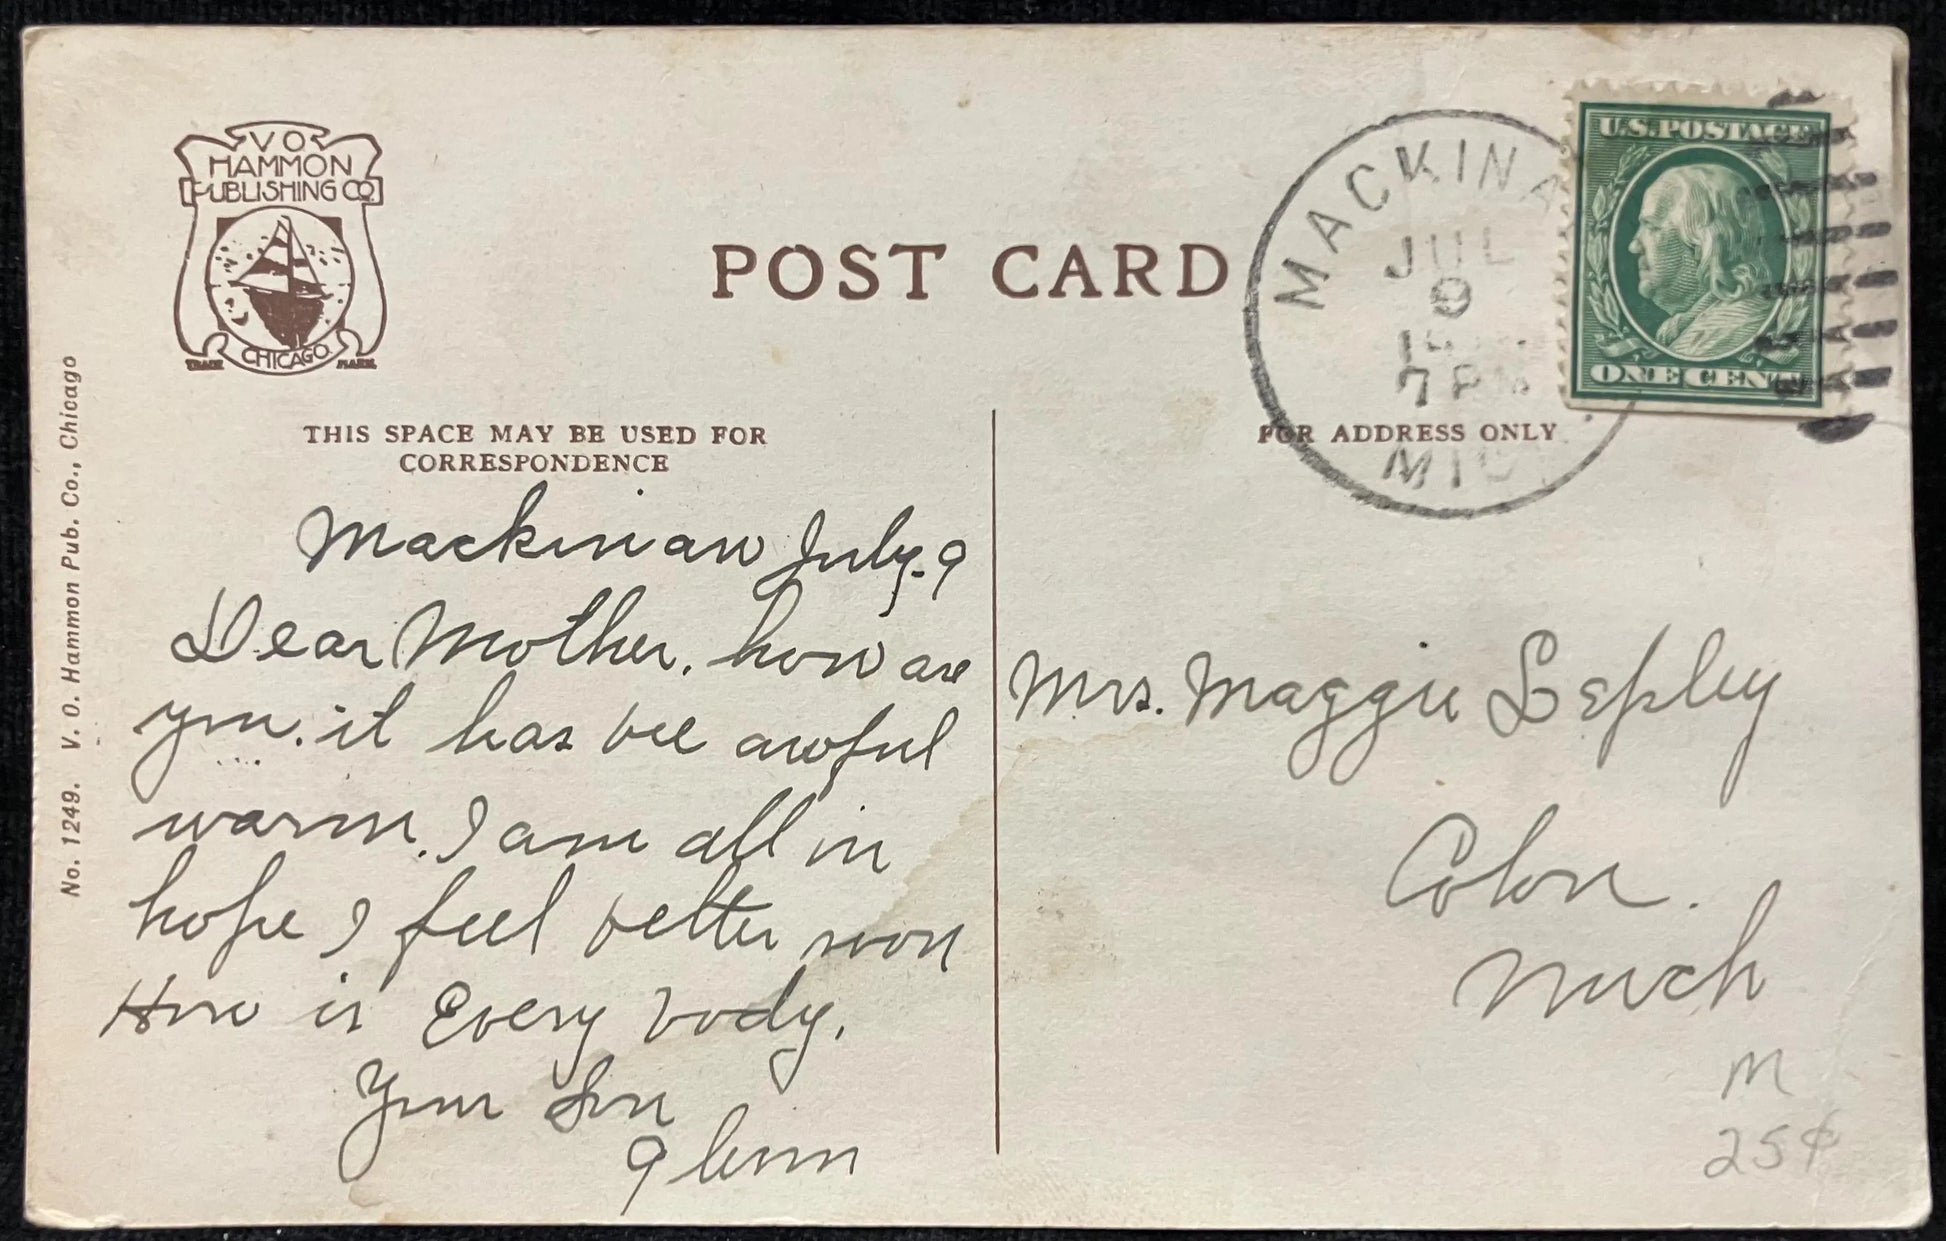 V O
HAMMON
PUBLISHING CO.
CHICAGO
TRADE MARK
POST CARD
MACKINA
JUL
9
7 PM
MICH
U.S. POSTAGE
ONE CENT
No. 1249. V. O. Hammon Pub. Co., Chicago
THIS SPACE MAY BE USED FOR
CORRESPONDENCE
FOR ADDRESS ONLY
Mackinaw July. 9
Dear Mother. how are
you. it has bee awful
warm. I am all in
hope I feel better soon
How is Every body.
Your Son
Glenn
Mrs. Maggie Lepley
Colon.
Mich
M
25¢